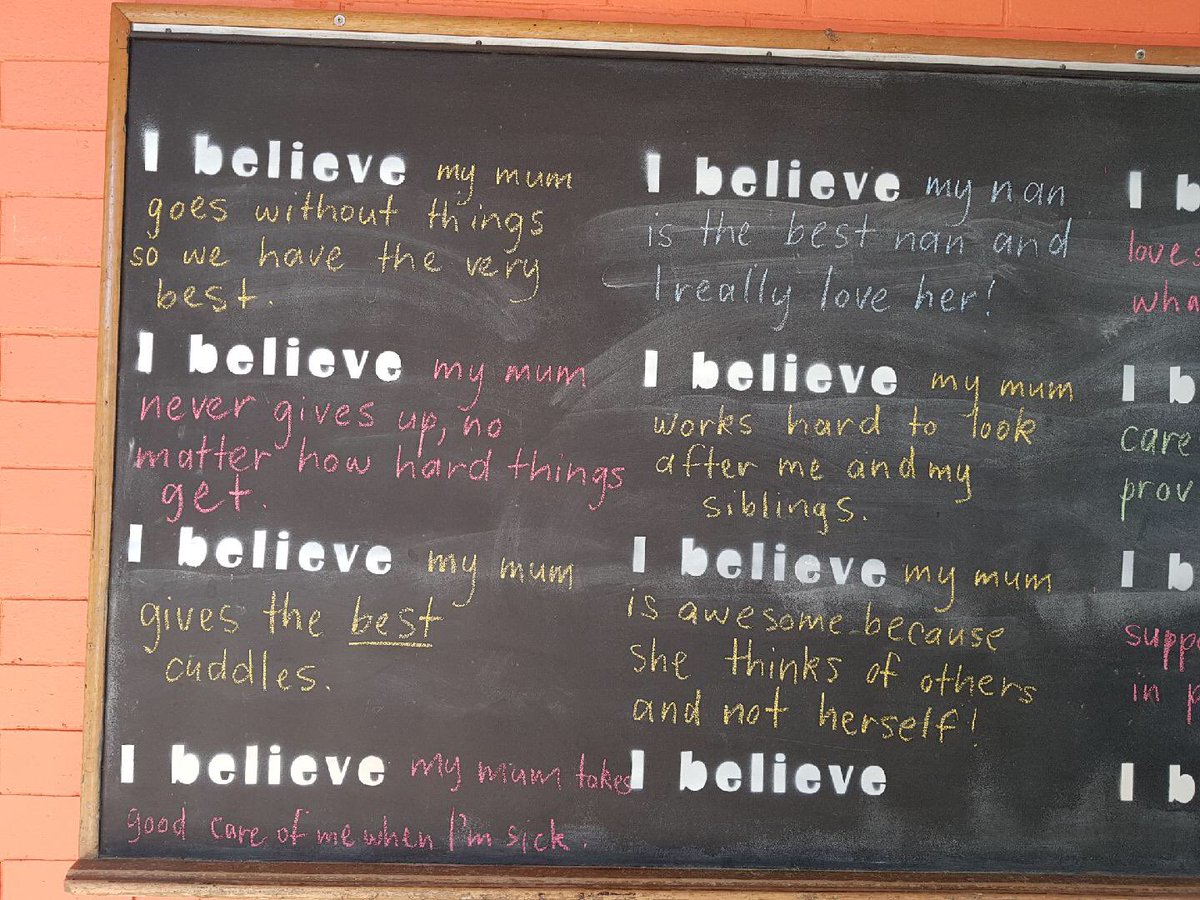 I believe my mum
goes without things
so we have the very
best.
I believe my mum
never gives up, no
matter how hard things
get.
I believe my mum
gives the best
cuddles.
I believe my mum takes
good care of me when I'm sick.
I believe my nan
is the best nan and
I really love her!
I believe my mum
works hard to look
after me and my
siblings.
I believe my mum
is awesome because
she thinks of others
and not herself!
I believe
I b
loves
wha
I b
care
prov
I b
suppo
in p
I b